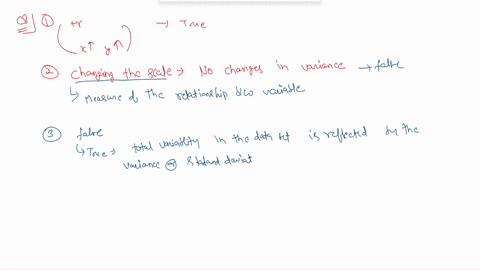 Q ① +r → True
x↑ y↑
② Changing the scale ⇒ No changes in variance → false
↳ Measure of the relationship b/w variable
③ false
↳ True ⇒ total variability in the data set is reflected by the
variance or standard deviat